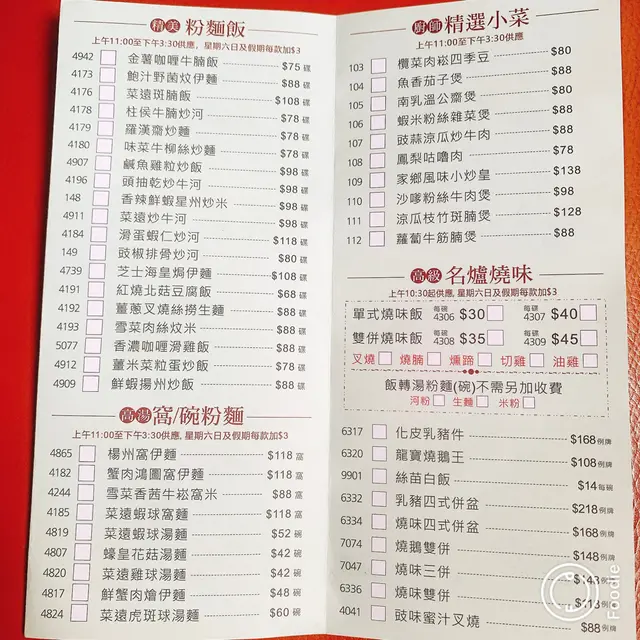 精美 粉麵飯
上午11:00至下午3:30供應，星期六日及假期每款加$3
4942 金薯咖喱牛腩飯 $75 碟
4173 鮑汁野菌炆伊麵 $88 碟
4176 菜遠斑腩飯 $108 碟
4178 柱侯牛腩炒河 $78 碟
4179 羅漢齋炒麵 $78 碟
4180 味菜牛柳絲炒麵 $78 碟
4907 鹹魚雞粒炒飯 $98 碟
4196 頭抽乾炒牛河 $98 碟
148 香辣鮮蝦星州炒米 $98 碟
4911 菜遠炒牛河 $98 碟
4184 滑蛋蝦仁炒河 $118 碟
149 豉椒排骨炒河 $80 碟
4739 芝士海皇焗伊麵 $108 碟
4191 紅燒北菇豆腐飯 $68 碟
4192 薑蔥叉燒絲撈生麵 $88 碟
4193 雪菜肉絲炆米 $88 碟
5077 香濃咖喱滑雞飯 $88 碟
4912 薑米菜粒蛋炒飯 $78 碟
4909 鮮蝦揚州炒飯 $88 碟
高湯 窩/碗粉麵
上午11:00至下午3:30供應，星期六日及假期每款加$3
4865 楊州窩伊麵 $118 窩
4182 蟹肉鴻圖窩伊麵 $118 窩
4244 雪菜香茜牛崧窩米 $88 窩
4185 菜遠蝦球窩麵 $118 窩
4819 菜遠蝦球湯麵 $52 碗
4807 蠔皇花菇湯麵 $42 碗
4820 菜遠雞球湯麵 $42 碗
4817 鮮蟹肉燴伊麵 $48 碗
4824 菜遠虎斑球湯麵 $60 碗
廚師 精選小菜
上午11:00至下午3:30供應
103 欖菜肉崧四季豆 $80
104 魚香茄子煲 $88
105 南乳溫公齋煲 $80
106 蝦米粉絲雜菜煲 $88
107 豉蒜涼瓜炒牛肉 $88
108 鳳梨咕嚕肉 $78
109 家鄉風味小炒皇 $138
110 沙嗲粉絲牛肉煲 $98
111 涼瓜枝竹斑腩煲 $128
112 蘿蔔牛筋腩煲 $88
高級 名爐燒味
上午10:30起供應，星期六日及假期每款加$3
單式燒味飯 每碗 4306 $30 每碟 4307 $40
雙併燒味飯 每碗 4308 $35 每碟 4309 $45
叉燒 燒腩 燻蹄 切雞 油雞
飯轉湯粉麵(碗)不需另加收費
河粉 生麵 米粉
6317 化皮乳豬件 $168 例牌
6320 龍寶燒鵝王 $108 例牌
9901 絲苗白飯 $14 每碗
6332 乳豬四式併盆 $218 例牌
6334 燒味四式併盆 $168 例牌
7074 燒鵝雙併 $148 例牌
7047 燒味三併 $148 例牌
6336 燒味雙併 $118 例牌
4041 豉味蜜汁叉燒 $88 例牌
Foodie